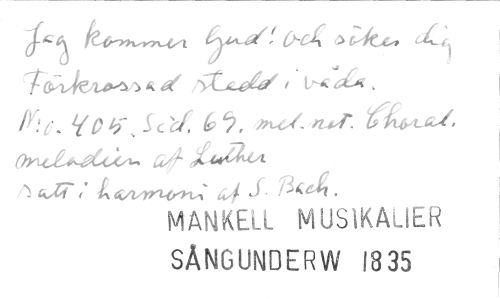 Jag kommer Gud! och söker dig
Förkrossad stadd i våda.
N:o. 405. Sid. 69. mel. not. Choral.
melodien af Luther
satt i harmoni af S. Bach.
MANKELL MUSIKALIER
SÅNGUNDERW 1835